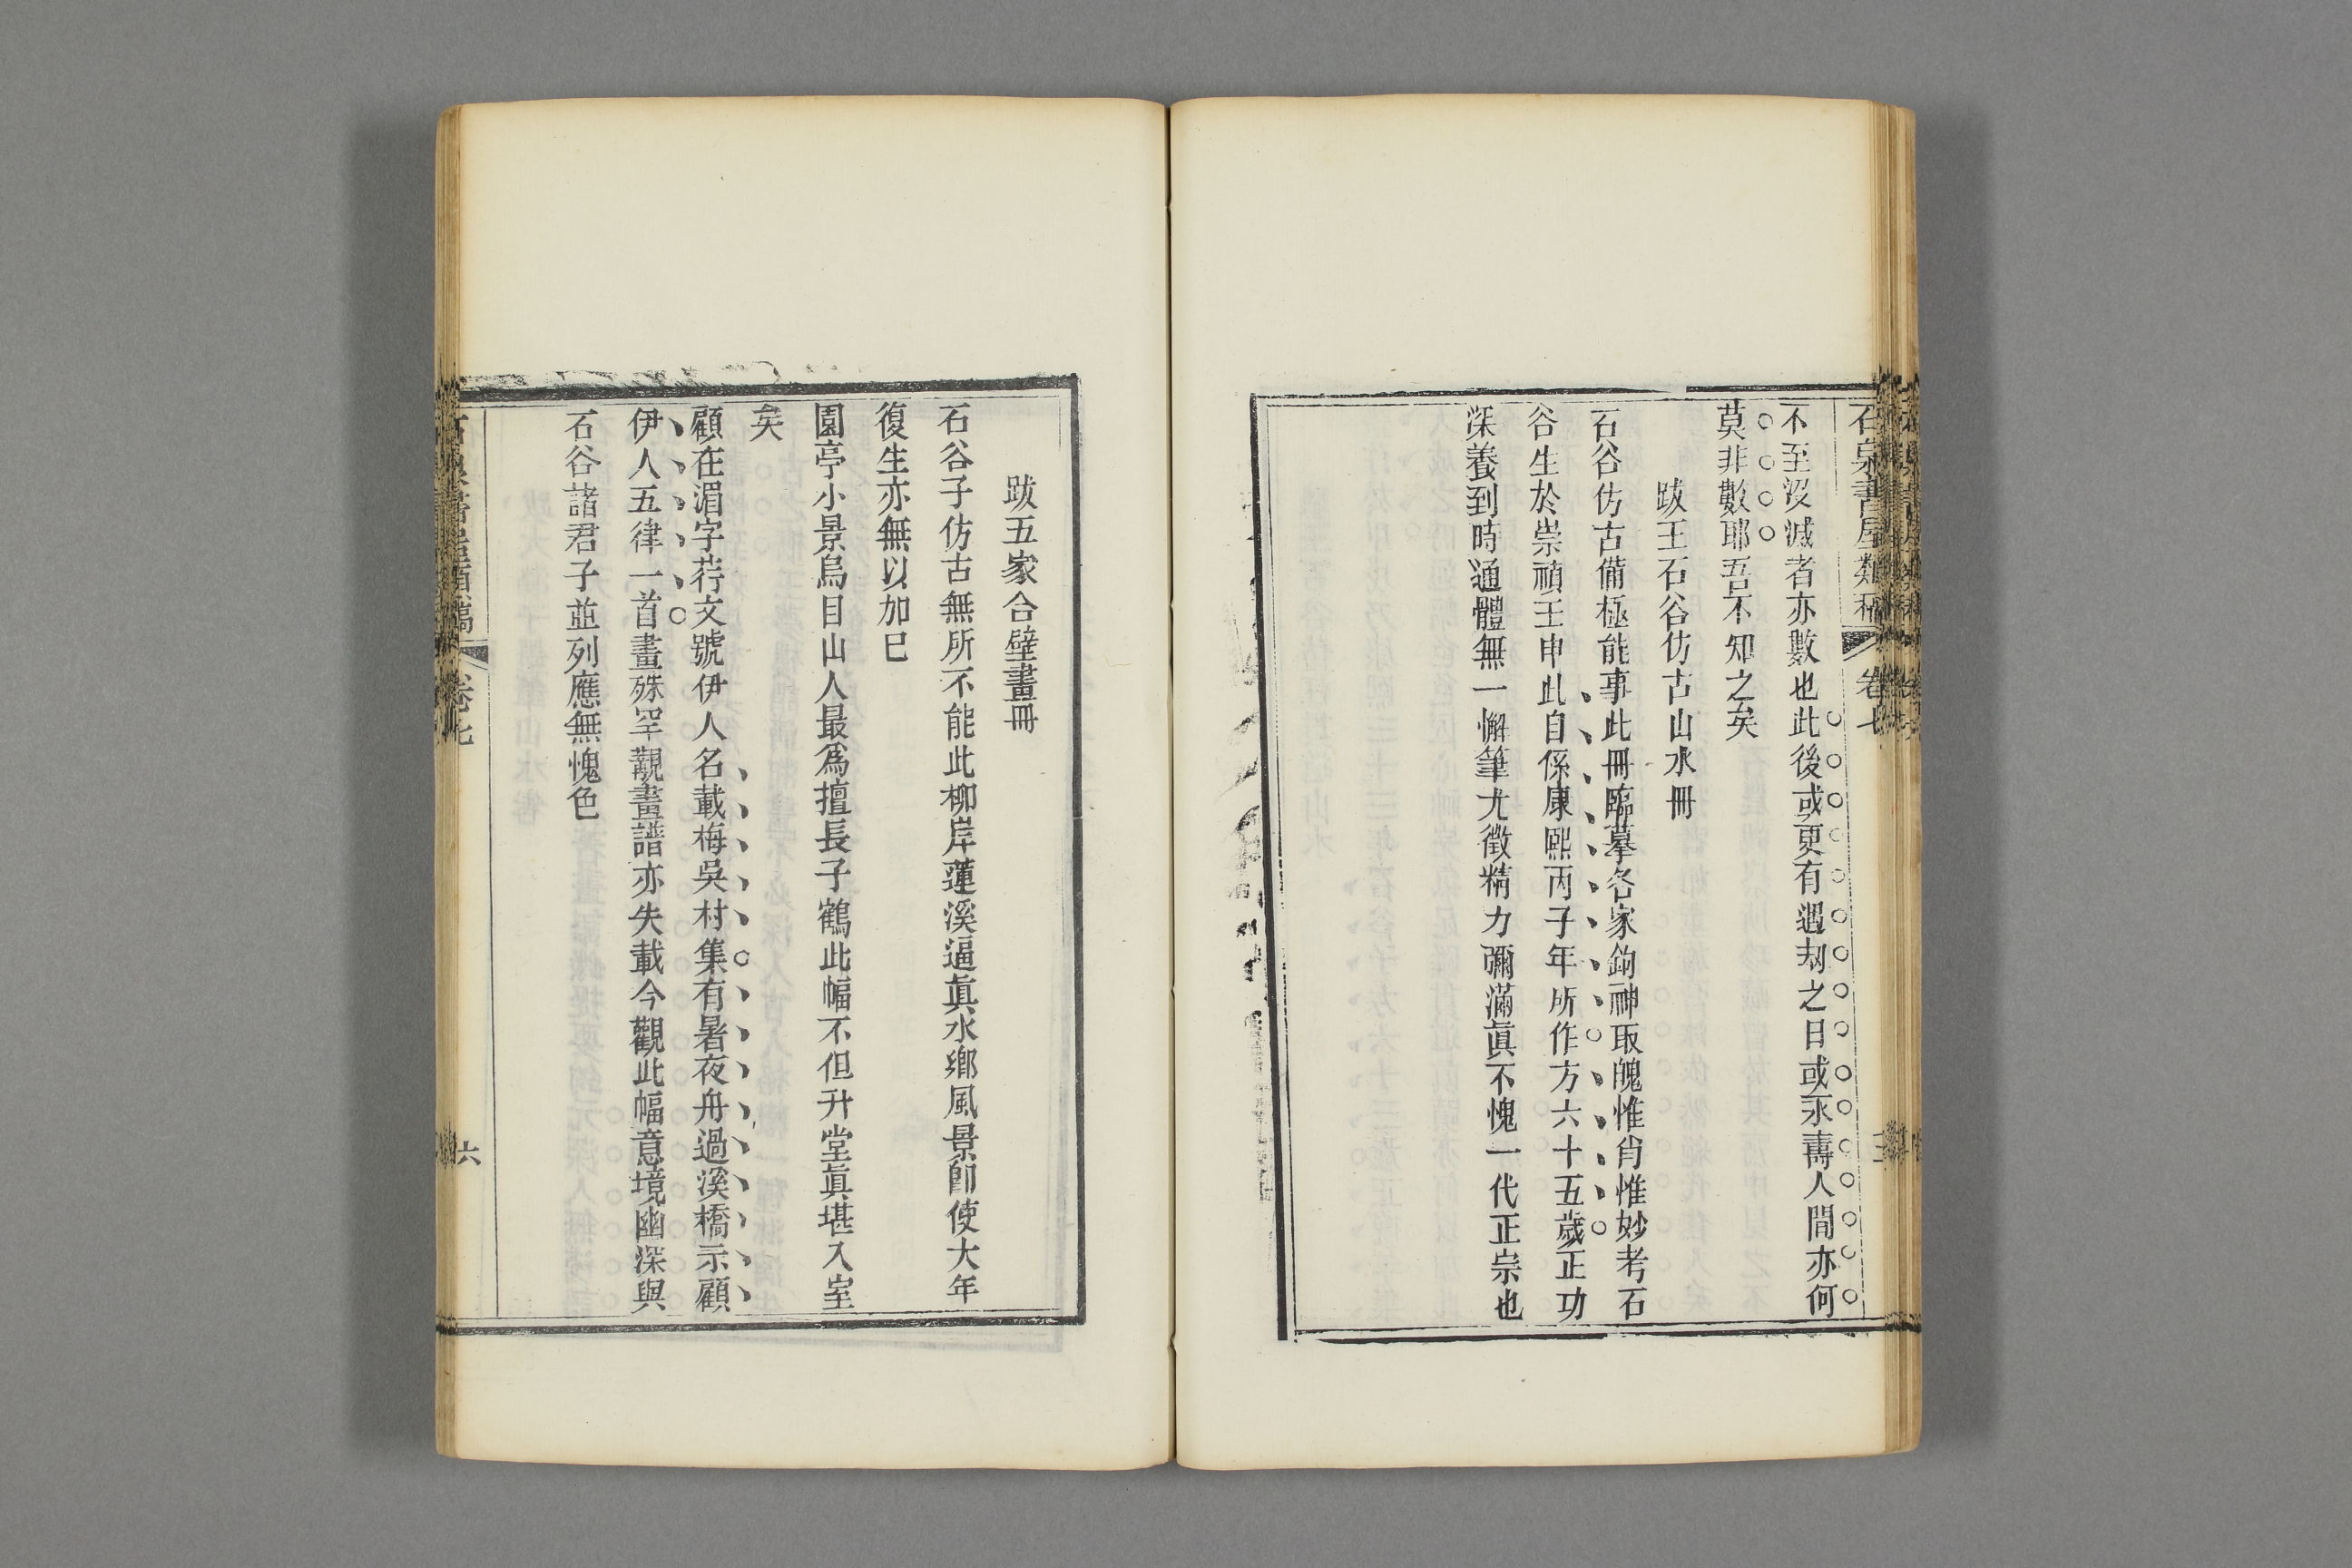 石泉書屋類稿 卷七
不至沒滅者亦數也此後或更有遇刼之日或永壽人間亦何
莫非數耶吾不知之矣
跋王石谷仿古山水冊
石谷仿古備極能事此冊臨摹各家鉤神取魄惟肖惟妙考石
谷生於崇禎壬申此自係康熙丙子年所作方六十五歲正功
深養到時通體無一懈筆尤徵精力彌滿眞不愧一代正宗也
跋五家合壁畫冊
石谷子仿古無所不能此柳岸蓮溪逼眞水鄉風景卽使大年
復生亦無以加巳
園亭小景烏目山人最爲擅長子鶴此幅不但升堂眞堪入室
矣
顧在湄字荇文號伊人名載梅吳村集有暑夜舟過溪橋示顧
伊人五律一首畫殊罕覯畫譜亦失載今觀此幅意境幽深與
石谷諸君子並列應無愧色
石泉書屋類稿 卷七 六